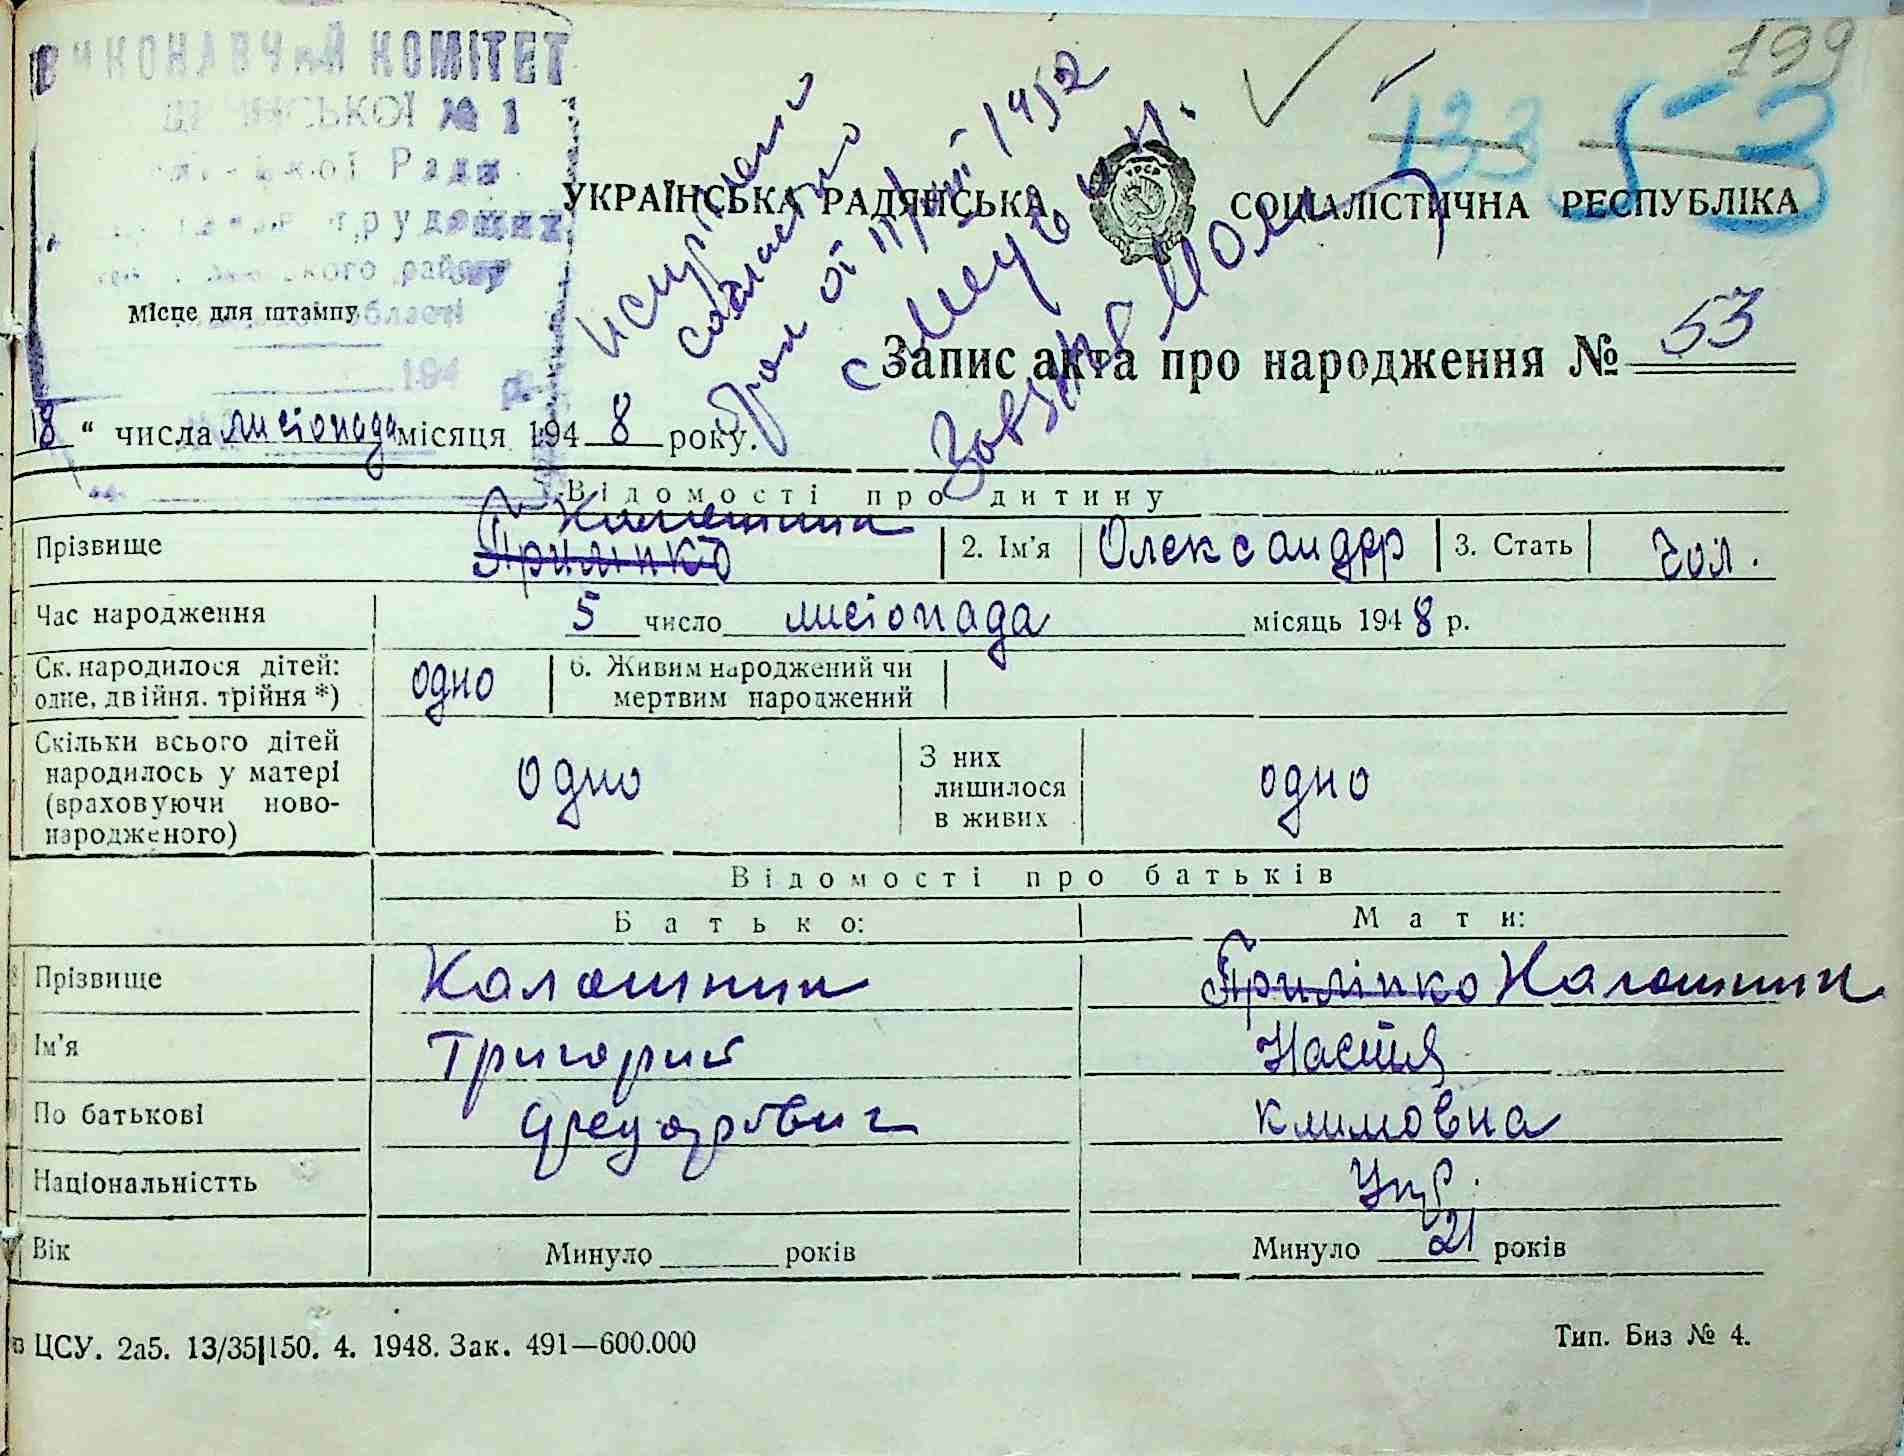 ВИКОНАВЧИЙ КОМІТЕТ
№ 1
Ради
трудящих
району
Місце для штампу
області
194
199
133 53
исправлено
согласно
от 1952
УКРАЇНСЬКА РАДЯНСЬКА СОЦІАЛІСТИЧНА РЕСПУБЛІКА
УРСР
Запис акта про народження № 53
18 " числа листопада місяця 1948 року.
Відомості про дитину
Калашник
Прізвище Приліпко 2. Ім'я Олександр 3. Стать чол.
Час народження 5 число листопада місяць 1948 р.
Ск. народилося дітей: одно 6. Живим народжений чи
одне, двійня. трійня *) мертвим народжений
Скільки всього дітей З них
народилось у матері одно лишилося одно
(враховуючи ново- в живих
народженого)
Відомості про батьків
Батько: Мати:
Прізвище Калашник Приліпко Калашник
Ім'я Григорий Настя
По батькові Федорович Климовна
Національністть Укр.
Вік Минуло років Минуло 21 років
ЦСУ. 2а5. 13/35|150. 4. 1948. Зак. 491—600.000 Тип. Биз № 4.